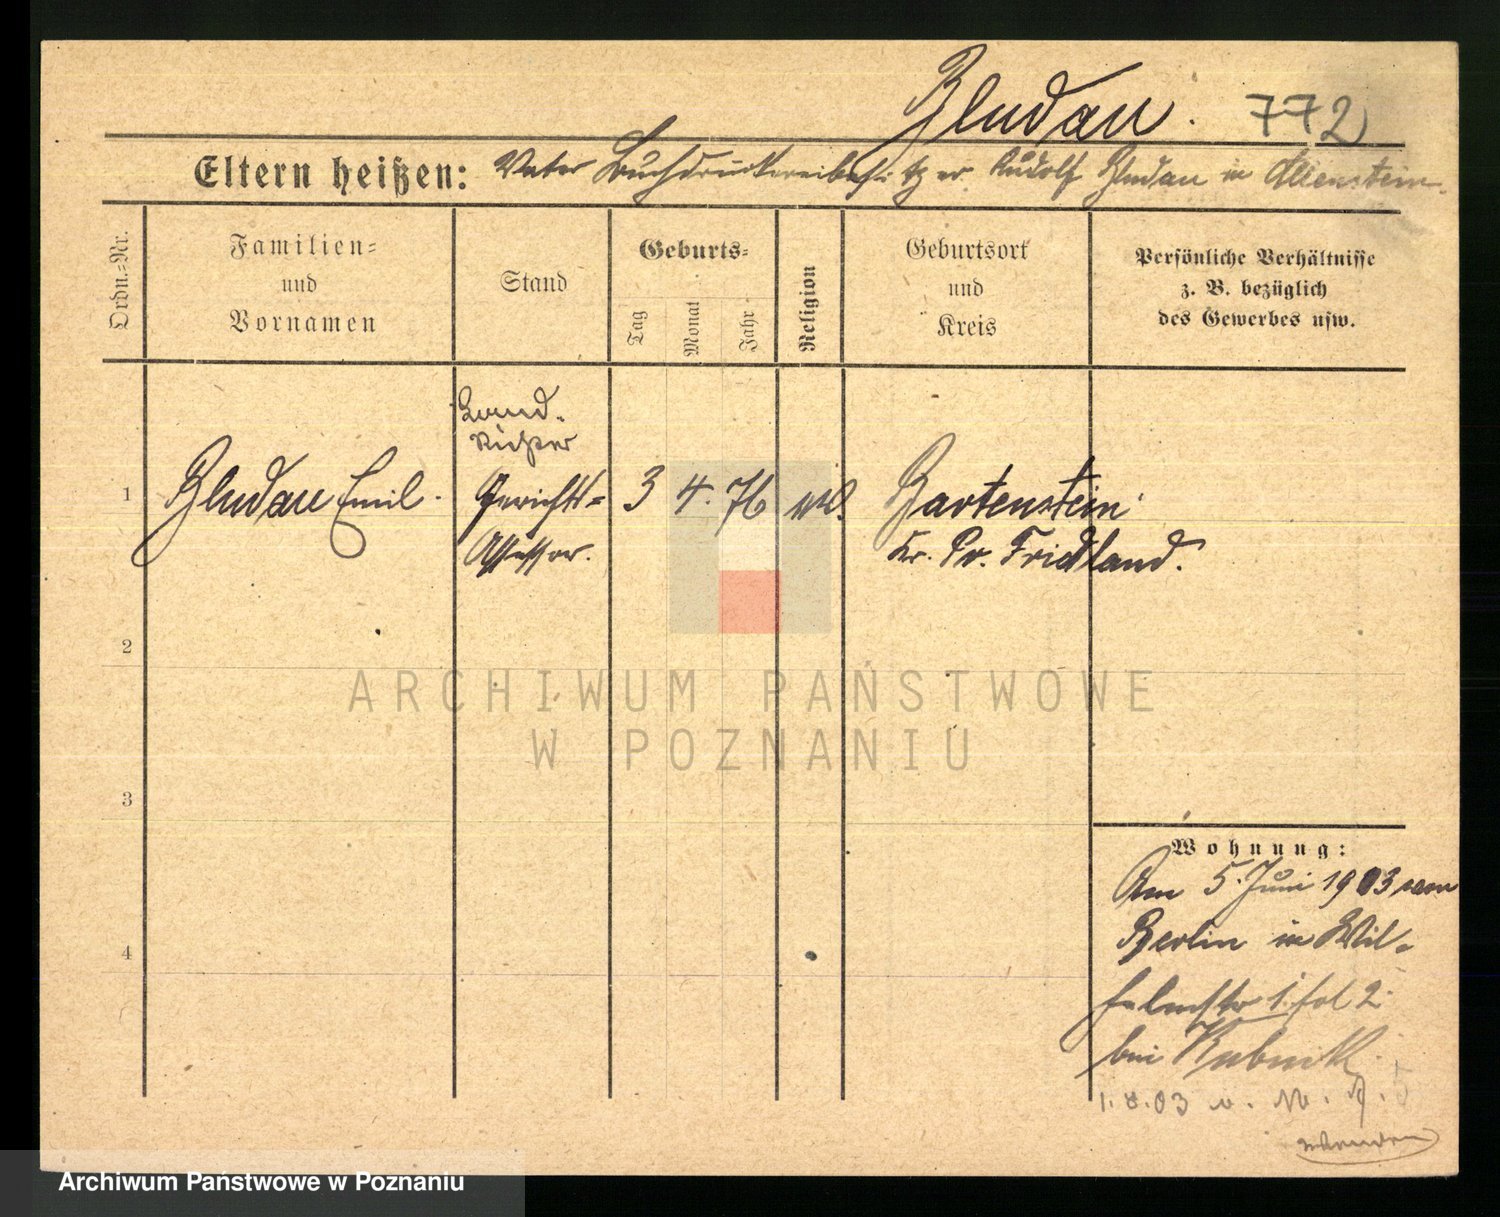 Bludau.
772
Eltern heißen: Vater Buchdruckereibesitzer Rudolf Bludau in Allenstein.
Ordn.=Nr.
Familien=
und
Vornamen
Stand
Geburts=
Tag
Monat
Jahr
Religion
Geburtsort
und
Kreis
Persönliche Verhältnisse
z. B. bezüglich
des Gewerbes usw.
Land-
Richter
1 Bludau Emil. Gerichts= 3 4. 76 Bartenstein
Assessor. Kr. Pr. Fridland.
2
3
4
Wohnung:
Am 5. Juni 1903 von
Berlin in Wil-
helmstr 1. fol 2.
bei
1.8.03
ARCHIWUM PAŃSTWOWE
W POZNANIU
Archiwum Państwowe w Poznaniu